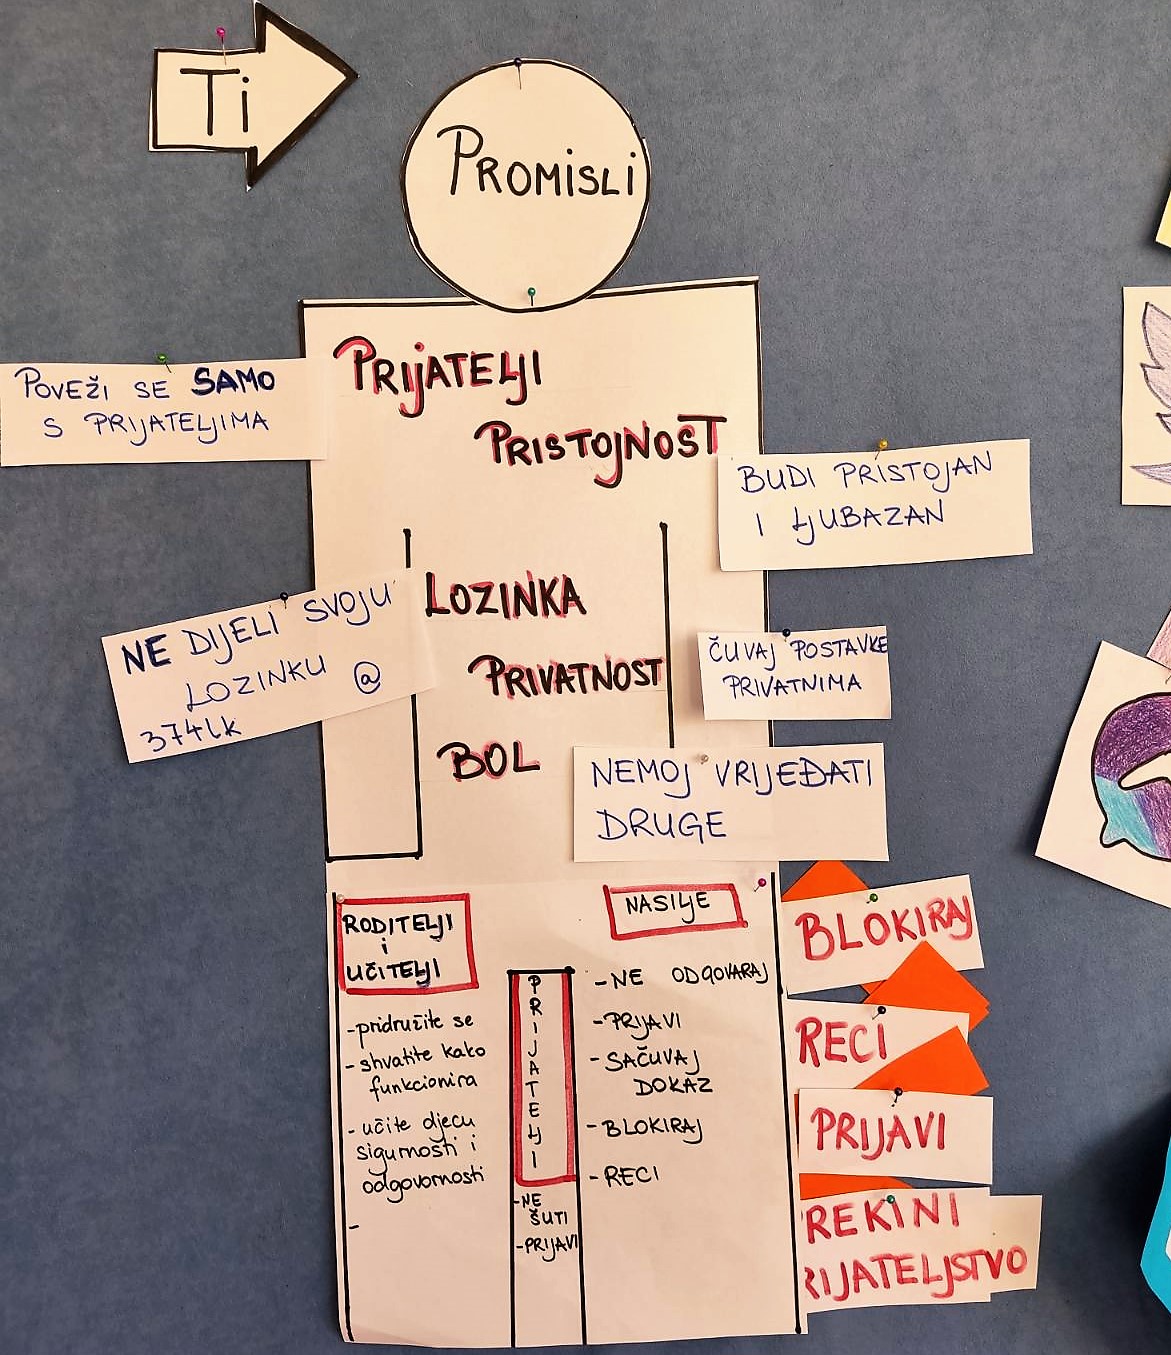 Ti
PROMISLI
PRIJATELJI
PRISTOJNOST
POVEŽI SE SAMO
S PRIJATELJIMA
BUDI PRISTOJAN
I LJUBAZAN
LOZINKA
NE DIJELI SVOJU
LOZINKU @
374lk
PRIVATNOST
ČUVAJ POSTAVKE
PRIVATNIMA
BOL
NEMOJ VRIJEĐATI
DRUGE
RODITELJI
i
UČITELJI
-pridružite se
-shvatite kako
funkcionira
-učite djecu
sigurnosti i
odgovornosti
-
PRIJATELJI
-NE
ŠUTI
-PRIJAVI
NASILJE
-NE ODGOVARAJ
-PRIJAVI
-SAČUVAJ
DOKAZ
-BLOKIRAJ
-RECI
BLOKIRAJ
RECI
PRIJAVI
REKINI
RIJATELJSTVO